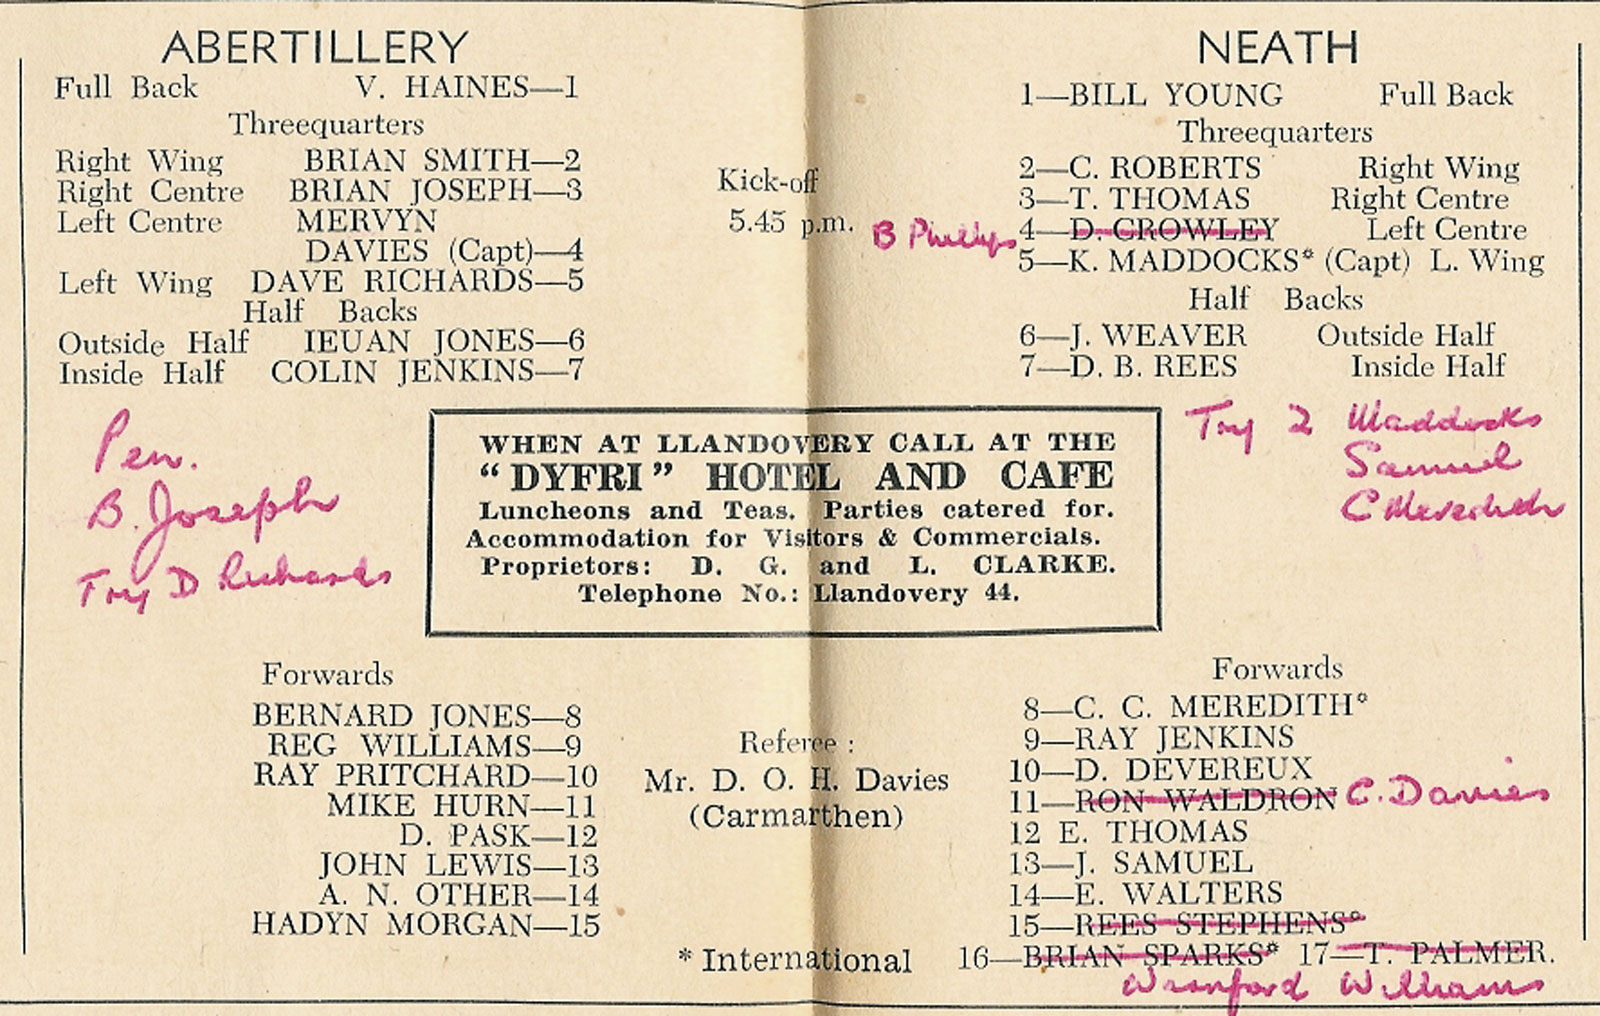 ABERTILLERY
Full Back V. HAINES—1
Threequarters
Right Wing BRIAN SMITH—2
Right Centre BRIAN JOSEPH—3
Left Centre MERVYN
DAVIES (Capt)—4
Left Wing DAVE RICHARDS—5
Half Backs
Outside Half IEUAN JONES—6
Inside Half COLIN JENKINS—7
Pen.
B. Joseph
Try D Richards
Forwards
BERNARD JONES—8
REG WILLIAMS—9
RAY PRITCHARD—10
MIKE HURN—11
D. PASK—12
JOHN LEWIS—13
A. N. OTHER—14
HADYN MORGAN—15
Kick-off
5.45 p.m.
WHEN AT LLANDOVERY CALL AT THE
“DYFRI” HOTEL AND CAFE
Luncheons and Teas. Parties catered for.
Accommodation for Visitors & Commercials.
Proprietors: D. G. and L. CLARKE.
Telephone No.: Llandovery 44.
Referee :
Mr. D. O. H. Davies
(Carmarthen)
* International
NEATH
1—BILL YOUNG Full Back
Threequarters
2—C. ROBERTS Right Wing
3—T. THOMAS Right Centre
B Phillips 4—D. CROWLEY Left Centre
5—K. MADDOCKS* (Capt) L. Wing
Half Backs
6—J. WEAVER Outside Half
7—D. B. REES Inside Half
Try 2 Maddocks
Samuel
C Meredith
Forwards
8—C. C. MEREDITH*
9—RAY JENKINS
10—D. DEVEREUX
11—RON WALDRON C. Davies
12 E. THOMAS
13—J. SAMUEL
14—E. WALTERS
15—REES STEPHENS*
16—BRIAN SPARKS* 17—T. PALMER.
Williams